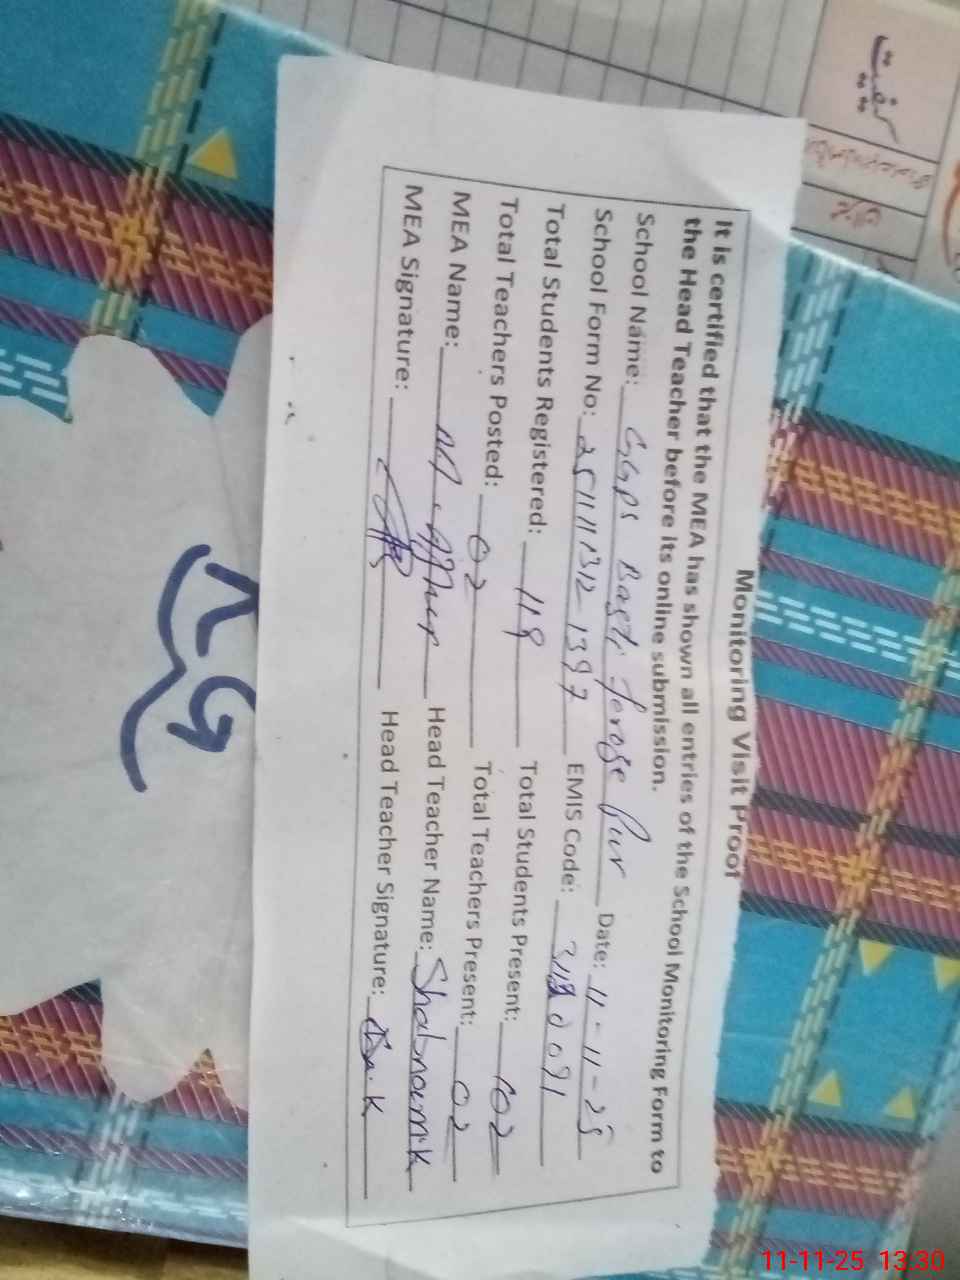 Monitoring Visit Proof
It is certified that the MEA has shown all entries of the School Monitoring Form to
the Head Teacher before its online submission.
School Name: GGPS Basti Feroze Pur Date: 11-11-25
School Form No: 25111113121397 EMIS Code: 31180091
Total Students Registered: 119 Total Students Present: 102
Total Teachers Posted: 02 Total Teachers Present: 02
MEA Name: Head Teacher Name: Shabnam.K
MEA Signature: Head Teacher Signature:
کیفیت
11-11-25 13:30